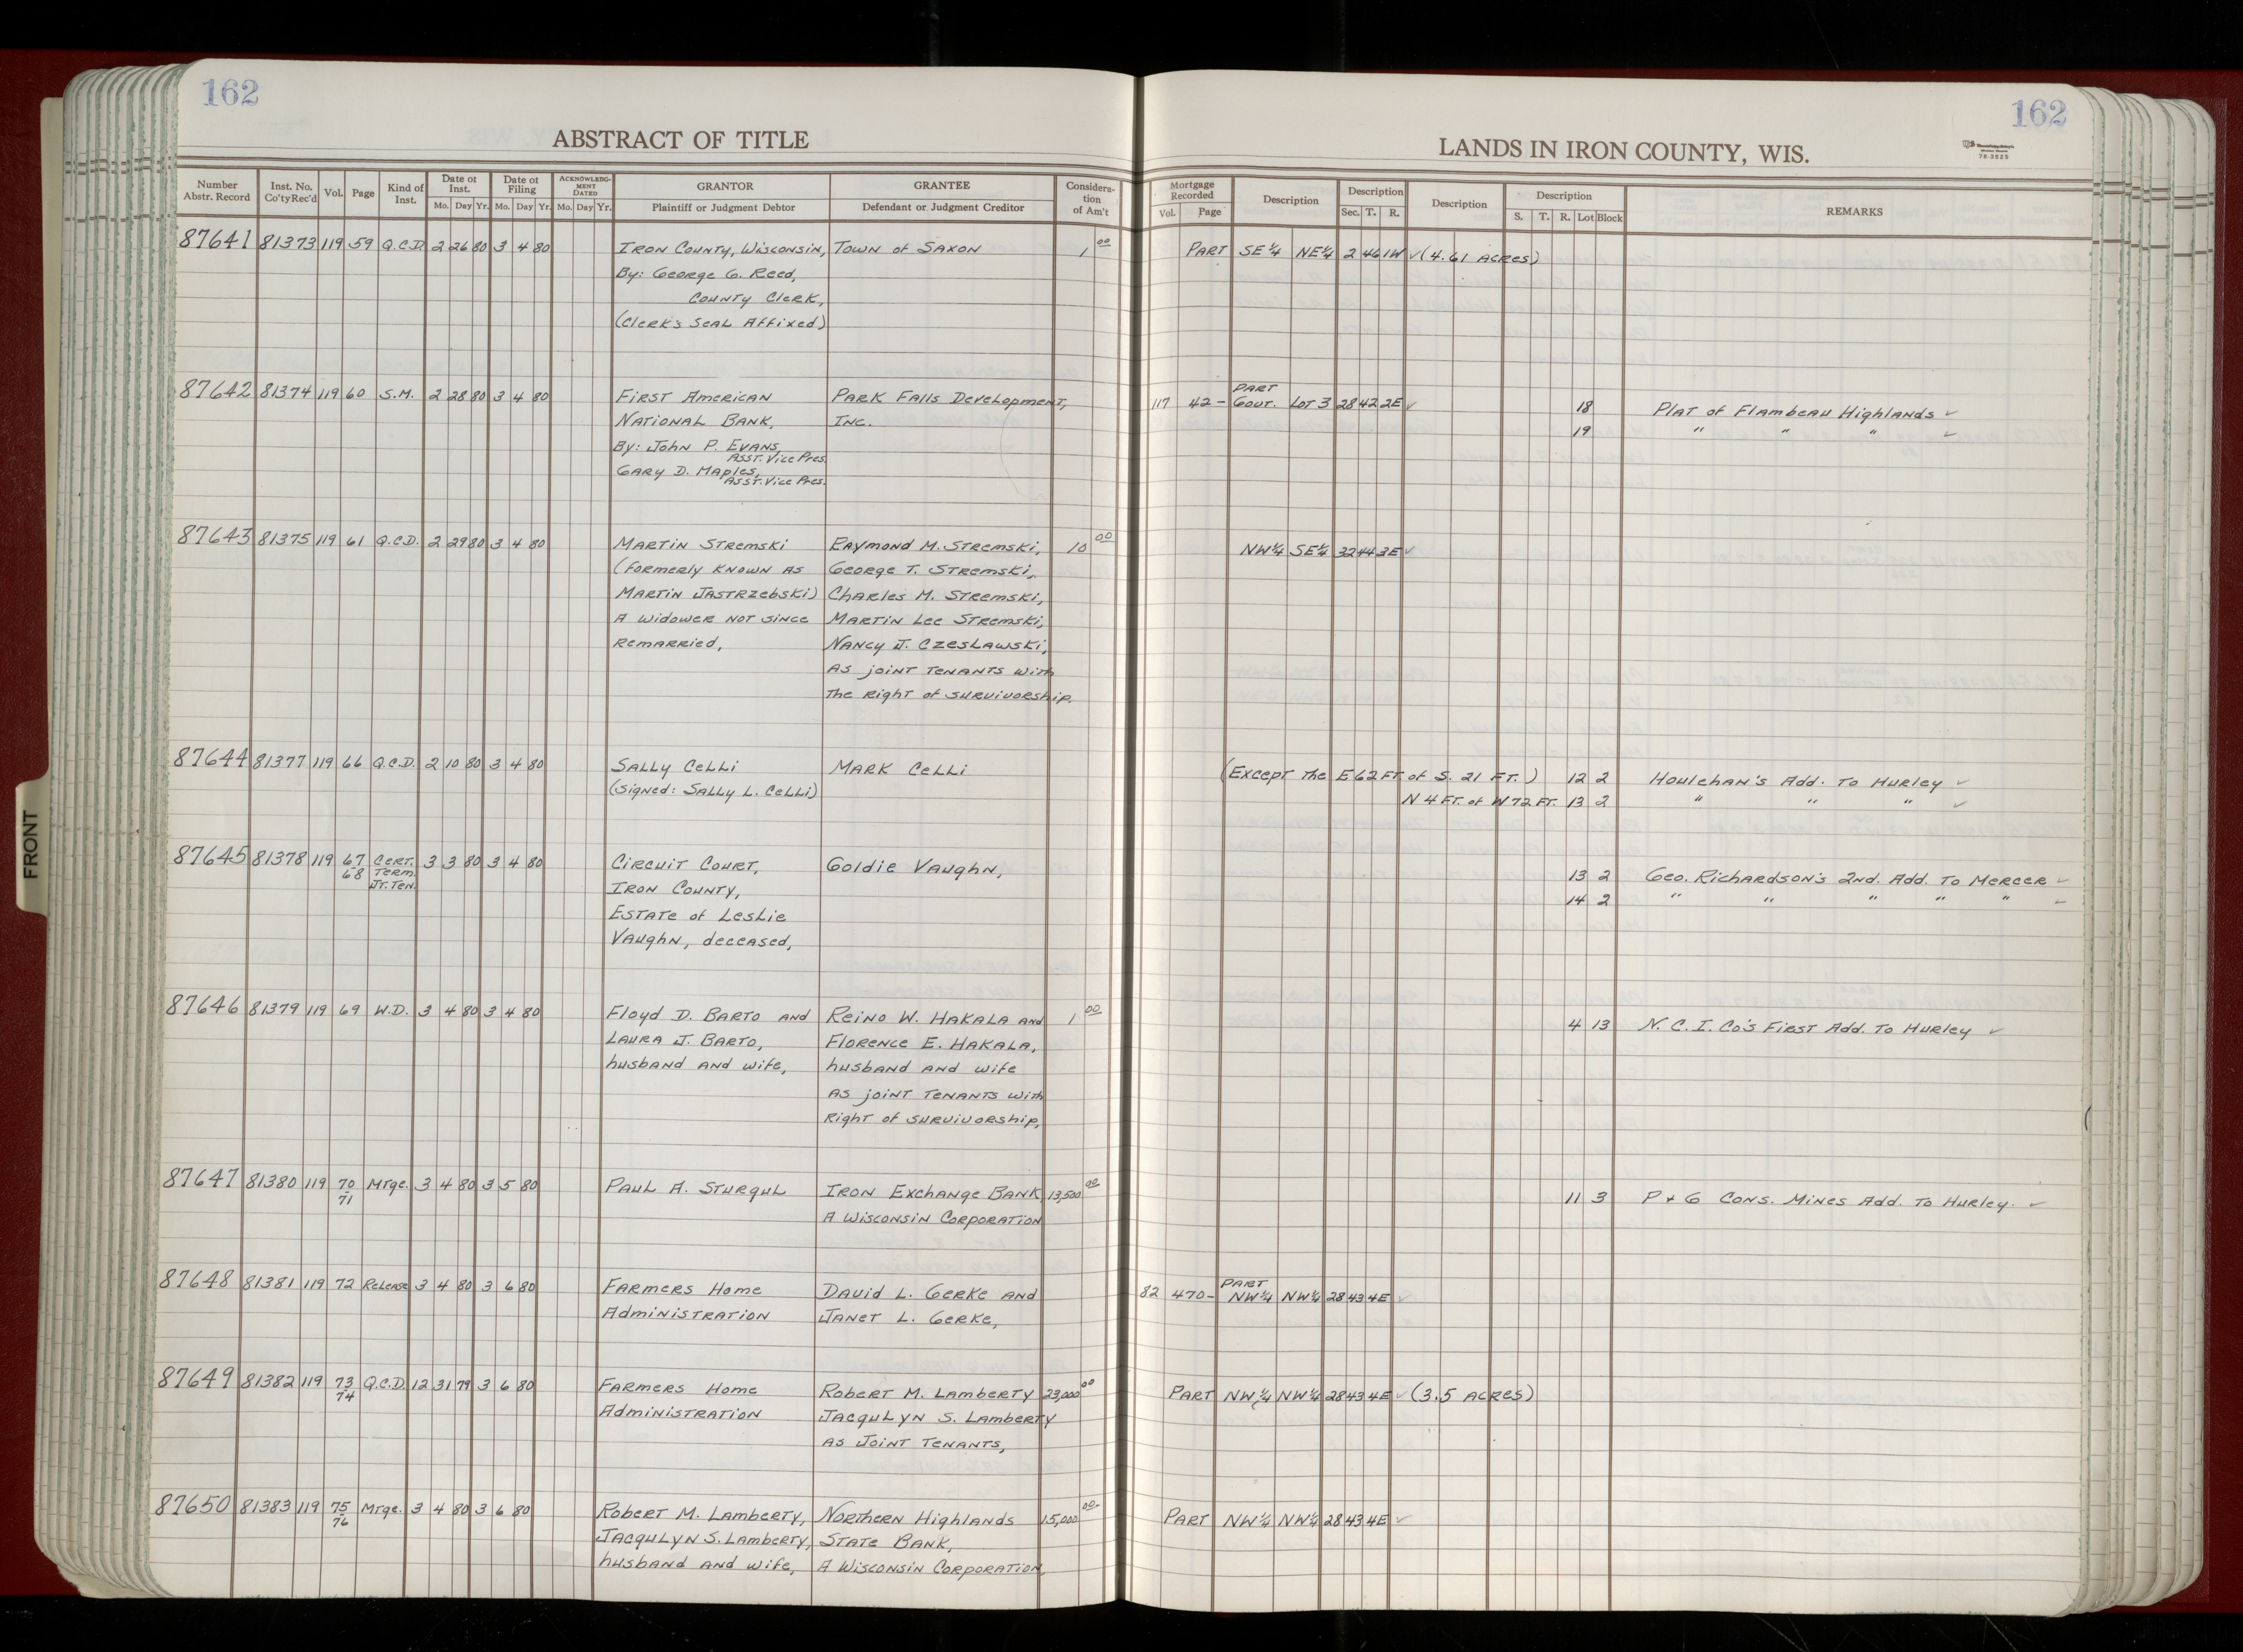 162
162
ABSTRACT OF TITLE
LANDS IN IRON COUNTY, WIS.
78-3525
Number Abstr. Record | Inst. No. Co'ty Rec'd | Vol. | Page | Kind of Inst. | Date of Inst. Mo. Day Yr. | Date of Filing Mo. Day Yr. | ACKNOWLEDGMENT DATED Mo. Day Yr. | GRANTOR Plaintiff or Judgment Debtor | GRANTEE Defendant or Judgment Creditor | Consideration of Am't | Mortgage Recorded Vol. Page | Description | Description Sec. T. R. | Description | Description S. T. R. Lot Block | REMARKS
87641 81373 119 59 Q.C.D. 2 26 80 3 4 80 Iron County, Wisconsin, Town of Saxon 1 00 Part SE¼ NE¼ 2 46 1W ✓ (4.61 Acres)
By: George G. Reed,
County Clerk,
(Clerk's Seal Affixed)
87642 81374 119 60 S.M. 2 28 80 3 4 80 First American Park Falls Development, 117 42 - Part Gout. Lot 3 28 42 2E ✓ 18 Plat of Flambeau Highlands ✓
National Bank, Inc. 19 " " " ✓
By: John P. Evans,
Asst. Vice Pres.
Gary D. Maples,
Asst. Vice Pres.
87643 81375 119 61 Q.C.D. 2 29 80 3 4 80 Martin Stremski Raymond M. Stremski, 10 00 NW¼ SE¼ 32 44 3E ✓
(formerly known as George T. Stremski,
Martin Jastrzebski) Charles M. Stremski,
A widower not since Martin Lee Stremski,
remarried, Nancy J. Czeslawski,
As joint tenants with
the right of survivorship.
87644 81377 119 66 Q.C.D. 2 10 80 3 4 80 Sally Celli Mark Celli (Except the E 62 FT. of S. 21 FT.) 12 2 Houlehan's Add. To Hurley ✓
(Signed: Sally L. Celli) N 4 FT. of W 72 FT. 13 2 " " " ✓
87645 81378 119 67 68 Cert. Term. Jt. Ten. 3 3 80 3 4 80 Circuit Court, Goldie Vaughn, 13 2 Geo. Richardson's 2nd. Add. To Mercer ✓
Iron County, 14 2 " " " " " ✓
Estate of Leslie
Vaughn, deceased,
87646 81379 119 69 W.D. 3 4 80 3 4 80 Floyd D. Barto and Reino W. Hakala and 1 00 4 13 N. C. I. Co's First Add. To Hurley ✓
Laura J. Barto, Florence E. Hakala,
husband and wife, husband and wife
As joint tenants with
Right of survivorship,
87647 81380 119 70 71 Mtge. 3 4 80 3 5 80 Paul A. Sturgul Iron Exchange Bank 13,500 00 11 3 P & G Cons. Mines Add. To Hurley. ✓
A Wisconsin Corporation
87648 81381 119 72 Release 3 4 80 3 6 80 Farmers Home David L. Gerke and 82 470 - Part NW¼ NW¼ 28 43 4E ✓
Administration Janet L. Gerke,
87649 81382 119 73 74 Q.C.D. 12 31 79 3 6 80 Farmers Home Robert M. Lamberty 23,000 00 Part NW¼ NW¼ 28 43 4E ✓ (3.5 Acres)
Administration Jacqulyn S. Lamberty
As Joint Tenants,
87650 81383 119 75 76 Mtge. 3 4 80 3 6 80 Robert M. Lamberty, Northern Highlands 15,000 00 Part NW¼ NW¼ 28 43 4E ✓
Jacqulyn S. Lamberty, State Bank,
husband and wife, A Wisconsin Corporation,
FRONT